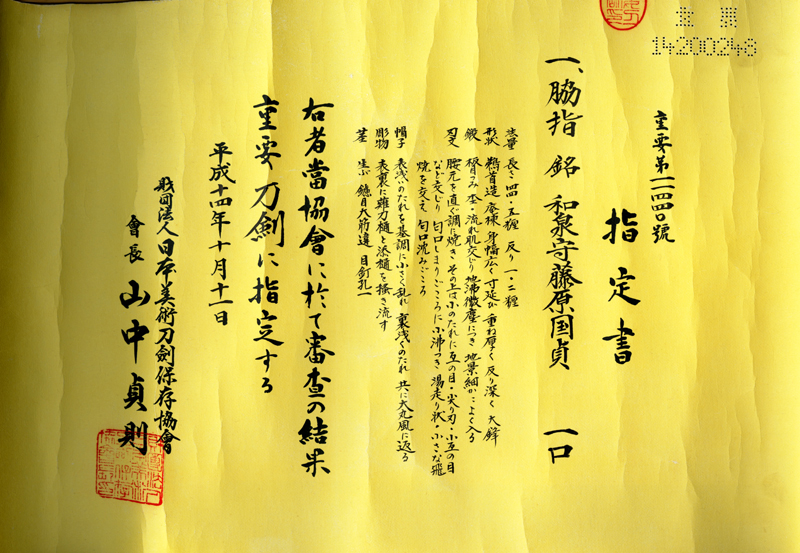 重票
14200248
重要第一一四四〇號
指定書
一、脇指 銘 和泉守藤原国貞 一口
法量 長さ四四・五糎 反り一・二糎
形状 鵜首造 庵棟 身幅広く 寸延び 重ね厚く 反り深く 大鋒
鍛 板目つみ 杢・流れ肌交じり 地沸微塵につき 地景細かによく入る
刃文 腰元を直ぐ調に焼き その上は小のたれに互の目・尖り刃・小互の目
など交じり 匂口しまりごころに小沸つき 湯走り状・小さな飛
焼を交え 匂口沈みごころ
帽子 表浅いのたれを基調に小さく乱れ 裏浅くのたれ 共に大丸風に返る
彫物 表裏に薙刀樋と添樋を掻き流す
茎 生ぶ 鑢目大筋違 目釘孔一
右者當協會に於て審査の結果
重要刀劍に指定する
平成十四年十月十一日
財団法人日本美術刀劍保存協會
會長 山中貞則